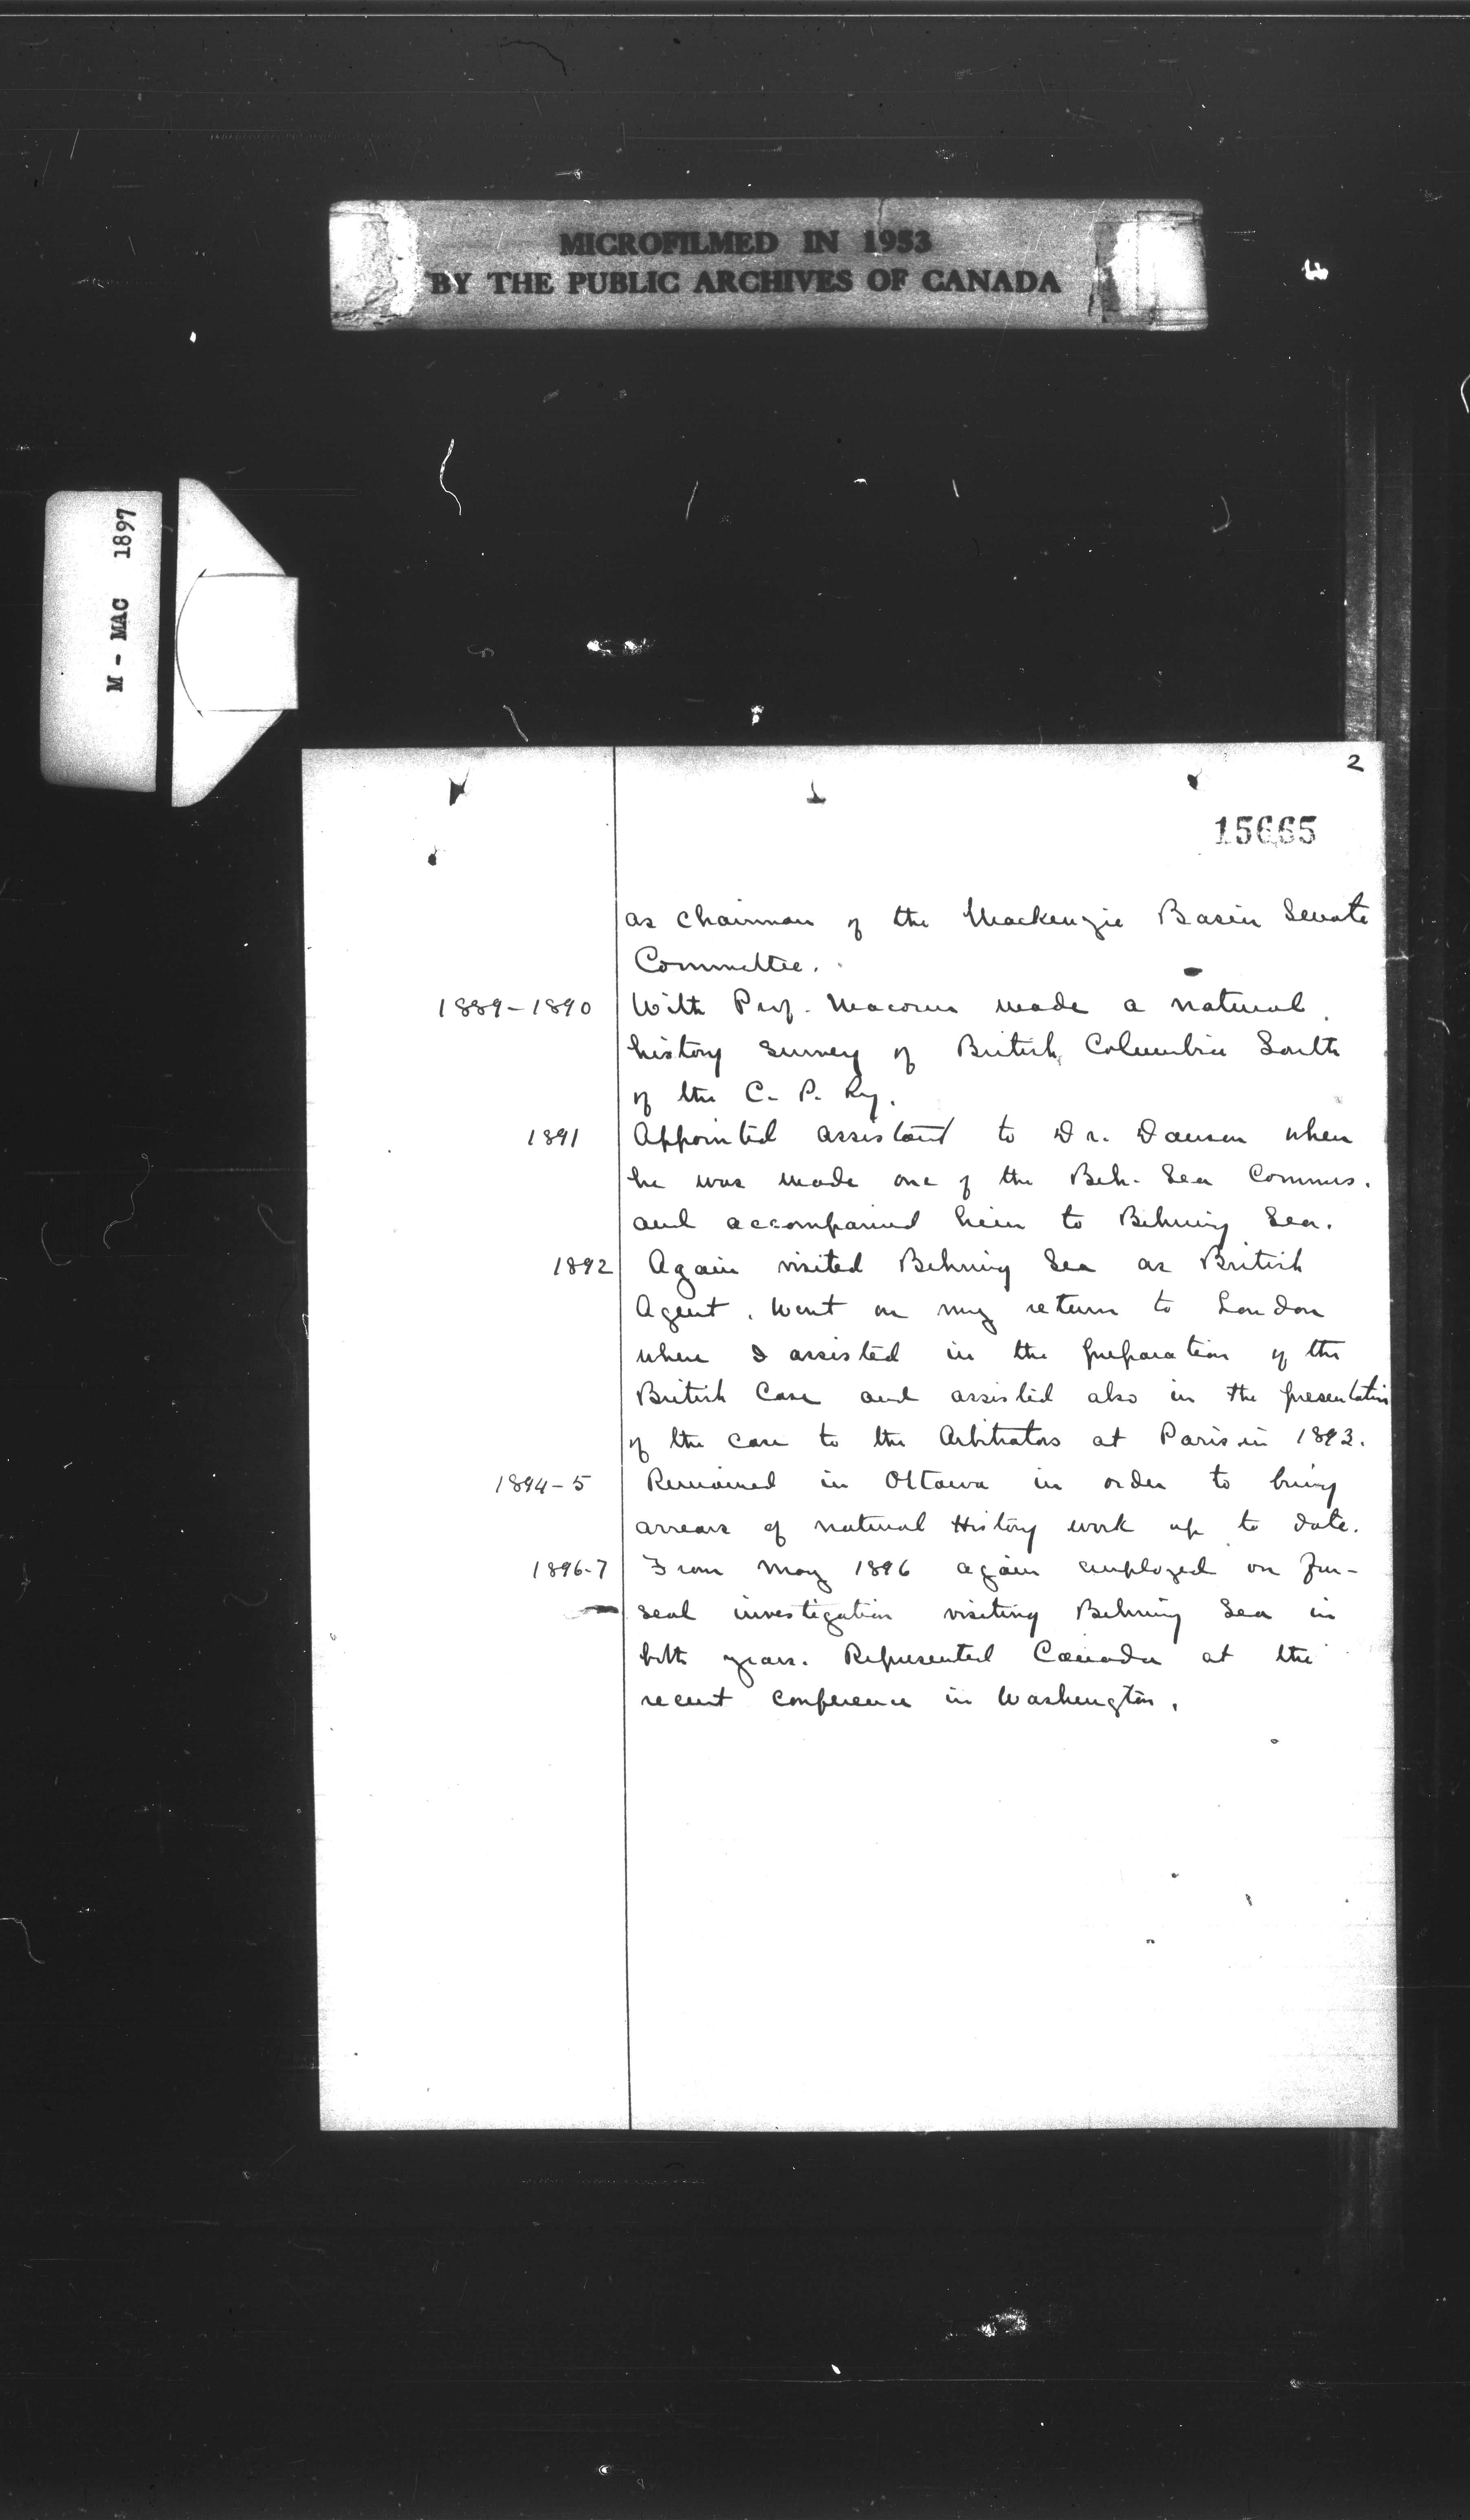 MICROFILMED IN 1953
BY THE PUBLIC ARCHIVES OF CANADA
M - MAC 1897
2
15665
as chairman of the Mackenzie Basin Senate
Committee.
1889-1890 With Prof. Macoun made a natural
history survey of British Columbia South
of the C. P. Ry.
1891 Appointed assistant to Dr. Dawson when
he was made one of the Beh. Sea Commrs.
and accompanied him to Behring Sea.
1892 Again visited Behring Sea as British
Agent. Went on my return to London
where I assisted in the preparation of the
British Case and assisted also in the presentation
of the case to the Arbitrators at Paris in 1893.
1894-5 Remained in Ottawa in order to bring
arrears of natural History work up to date.
1896-7 From May 1896 again employed on fur-
seal investigation visiting Behring Sea in
both years. Represented Canada at the
recent conference in Washington.